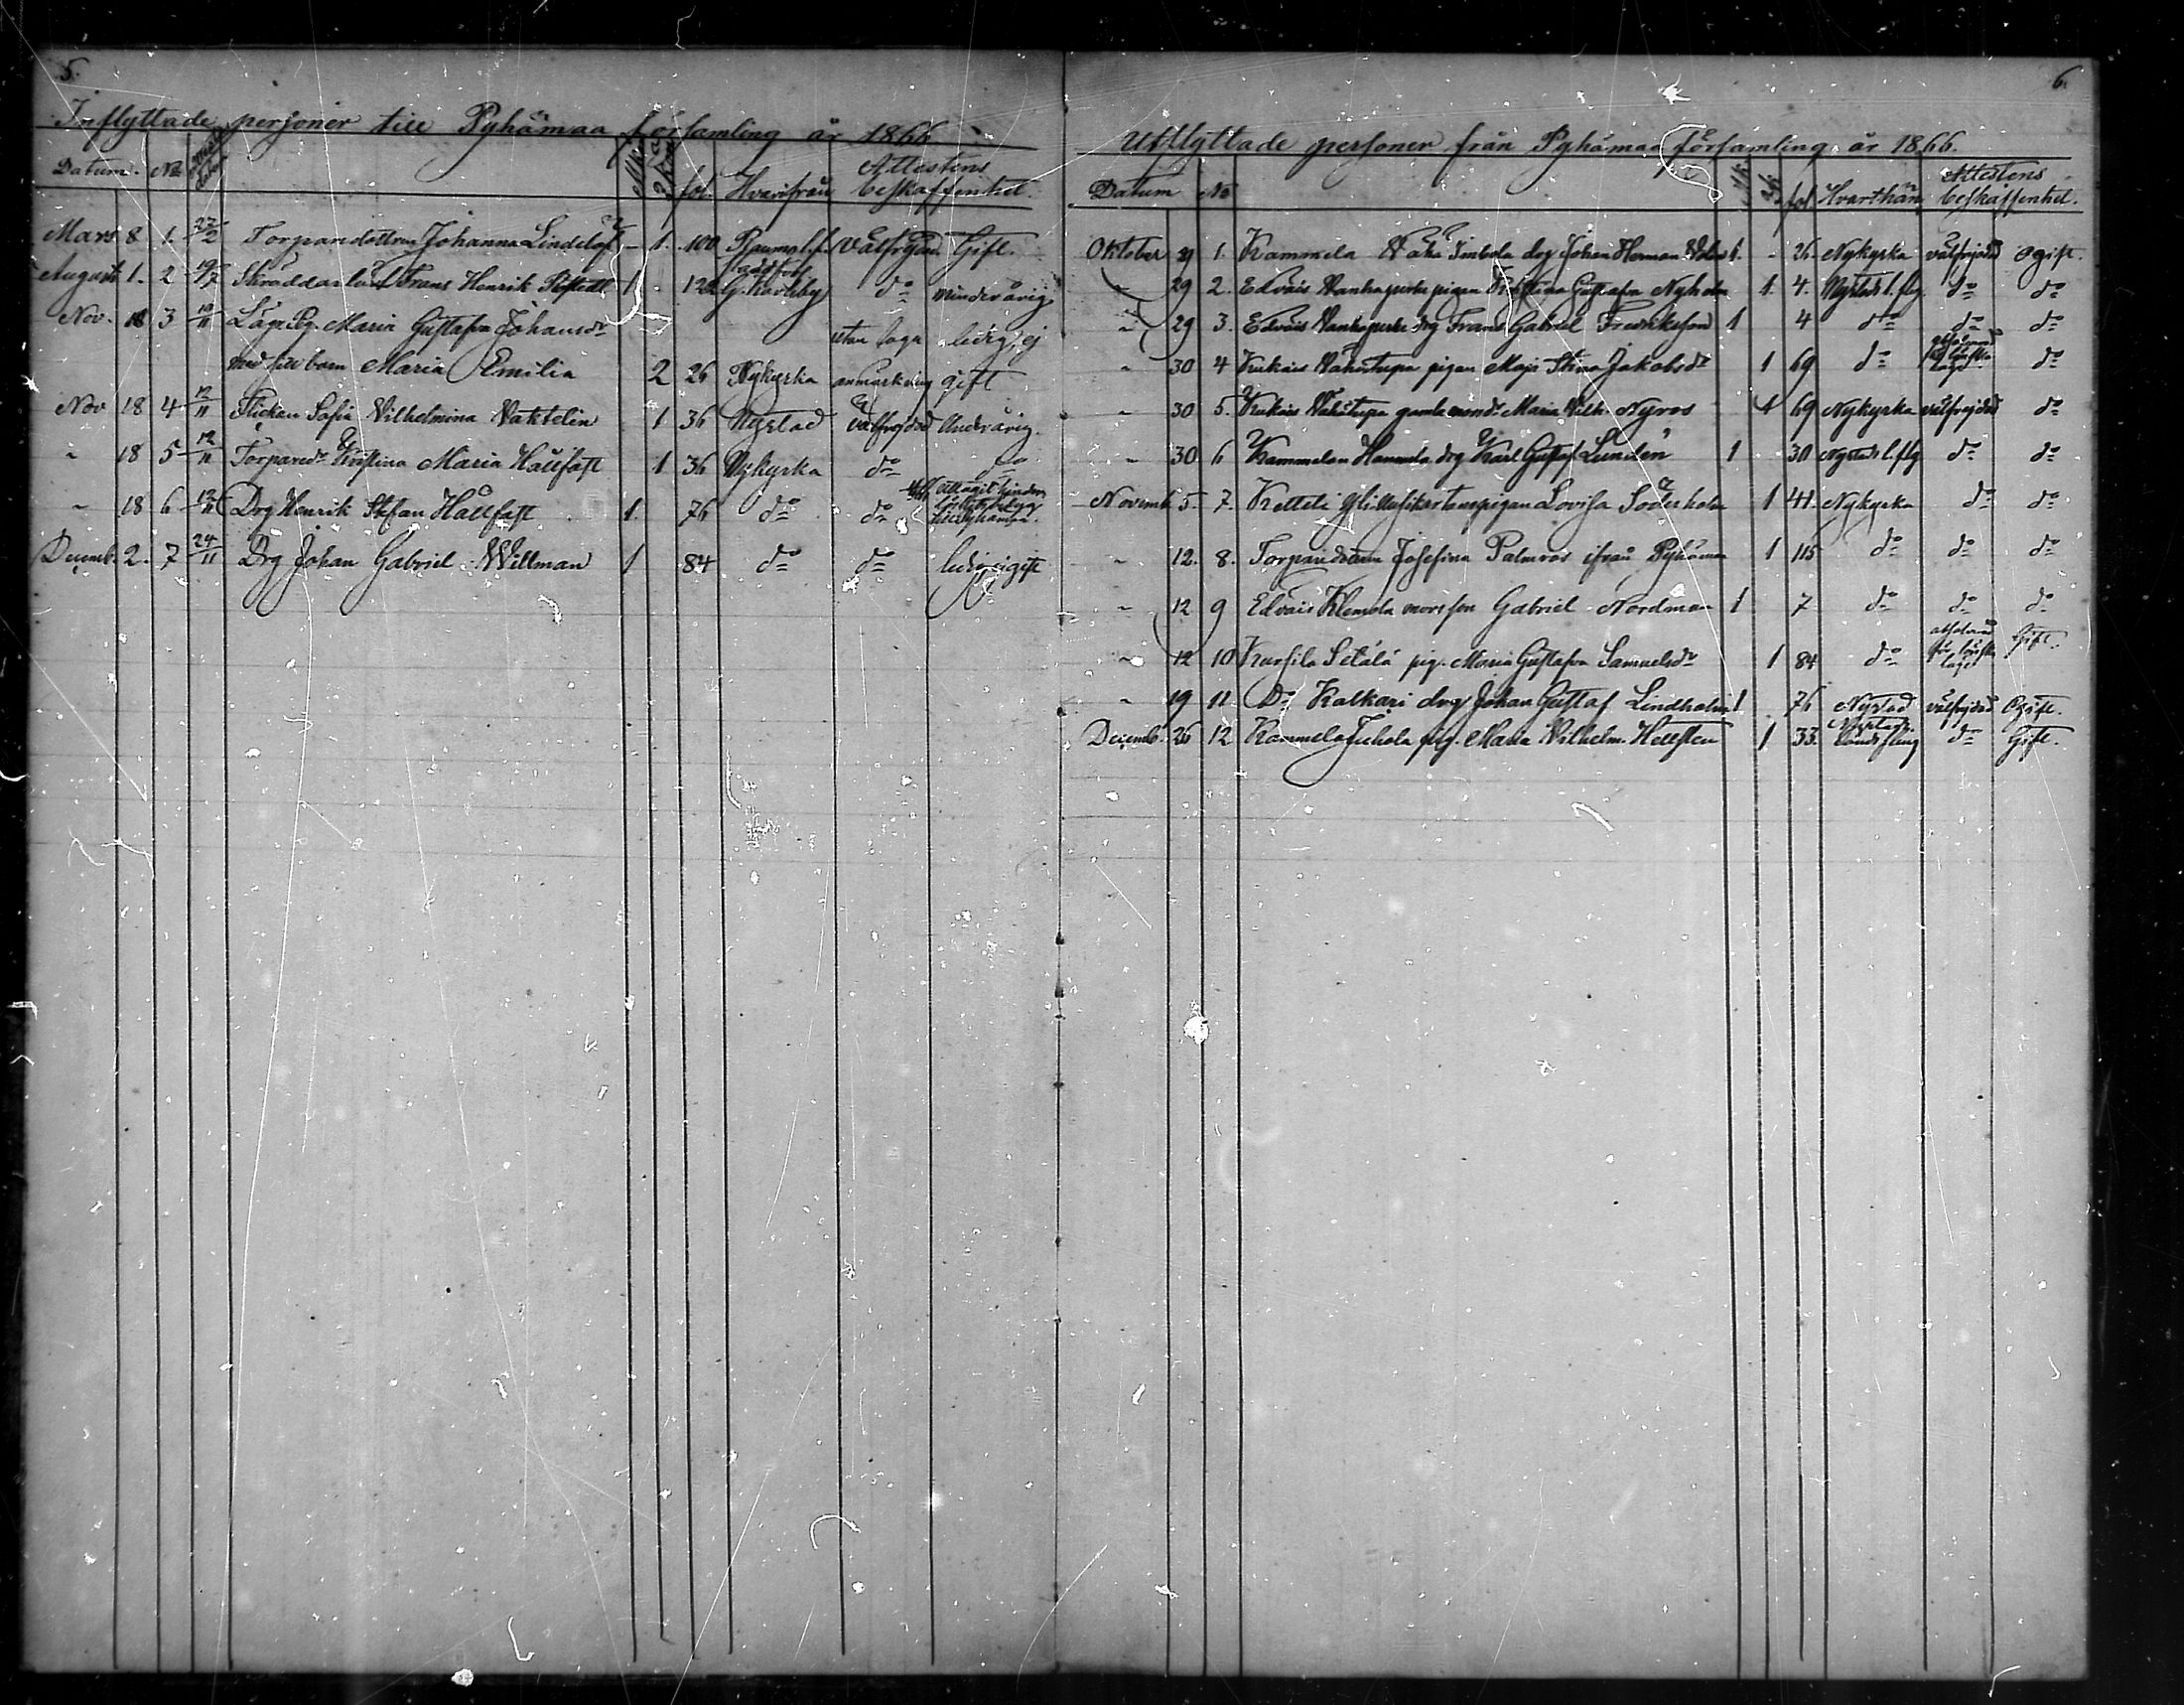 5.
Inflyttade personer till Pyhämaa församling år 1866
Datum. No fol. Hvarifrån Attestens beskaffenhet.
Mars 8 1. 27/2 Torparedottren Johanna Lindelöf - 1. 100 Raumo l.f. Välfrejdad Gift.
Augusti 1. 2 19/7 Skräddarlärl Frans Henrik 1 - 122 d:o minderårig
Nov. 18 3 Maria Gustafva Johansdr utan laga ledig, ej
med sitt barn Maria Emilia 2 26 Nykyrka anmärkning gift
Nov 18 4 12/11 Flickan Sofia Vilhelmina Vaktelin 1 36 Nystad Välfrejdad
" 18 5 12/11 Torparedr Kristina Maria Hallfast 1 36 Nykyrka d:o d:o
" 18 6 12/11 Drg Henrik Stefan Hallfast 1. 76 d:o d:o
Decemb. 2. 7 24/11 Drg Johan Gabriel Willman 1 84 d:o d:o
6.
Utflyttade personer från Pyhämaa församling år 1866.
Datum No fol Hvarthän Attestens beskaffenhet.
Oktober 29 1. Kammela drg Johan Herman 1. - 26. Nykyrka välfrejdad Ogift.
" 29 2. Edväis Vanhaperke pigan Kristina Gustafva Nyholm 1. 4. Nystads l. flg d:o d:o
" 29 3. Edväis Vanhaperke drg Frans Gabriel Fredriksson 1 4 d:o d:o d:o
" 30 4 Vähästupa pigan Maja Stina Jakobsdr 1 69 d:o d:o
" 30 5. Vähästupa gamla Maria Vilh. Nyros 1 69 Nykyrka välfrejdad d:o
" 30 6 Kammelan Hannula drg Karl Gustaf Lundén 1 30 Nystads l. flg d:o d:o
Novemb. 5. 7. Ketteli pigan Lovisa Söderholm 1 41. Nykyrka d:o d:o
" 12. 8. Torparedottren Josefina Palmros ifrån Pyhämaa 1 115 d:o d:o d:o
" 12 9 Edväis Klemola Gabriel Nordman 1 7 d:o d:o d:o
" 12 10 Kursila Setälä pig. Maria Gustafva Samuelsdr 1 84 d:o Gift.
" 19 11 D:o Kalkari drg Johan Gustaf Lindholm 1 76 Nystad välfrejdad Ogift.
Decemb. 26 12 Kammela pig. Maria Vilhelm. Hellsten 1 33. Nystads landsflmg d:o Gift.